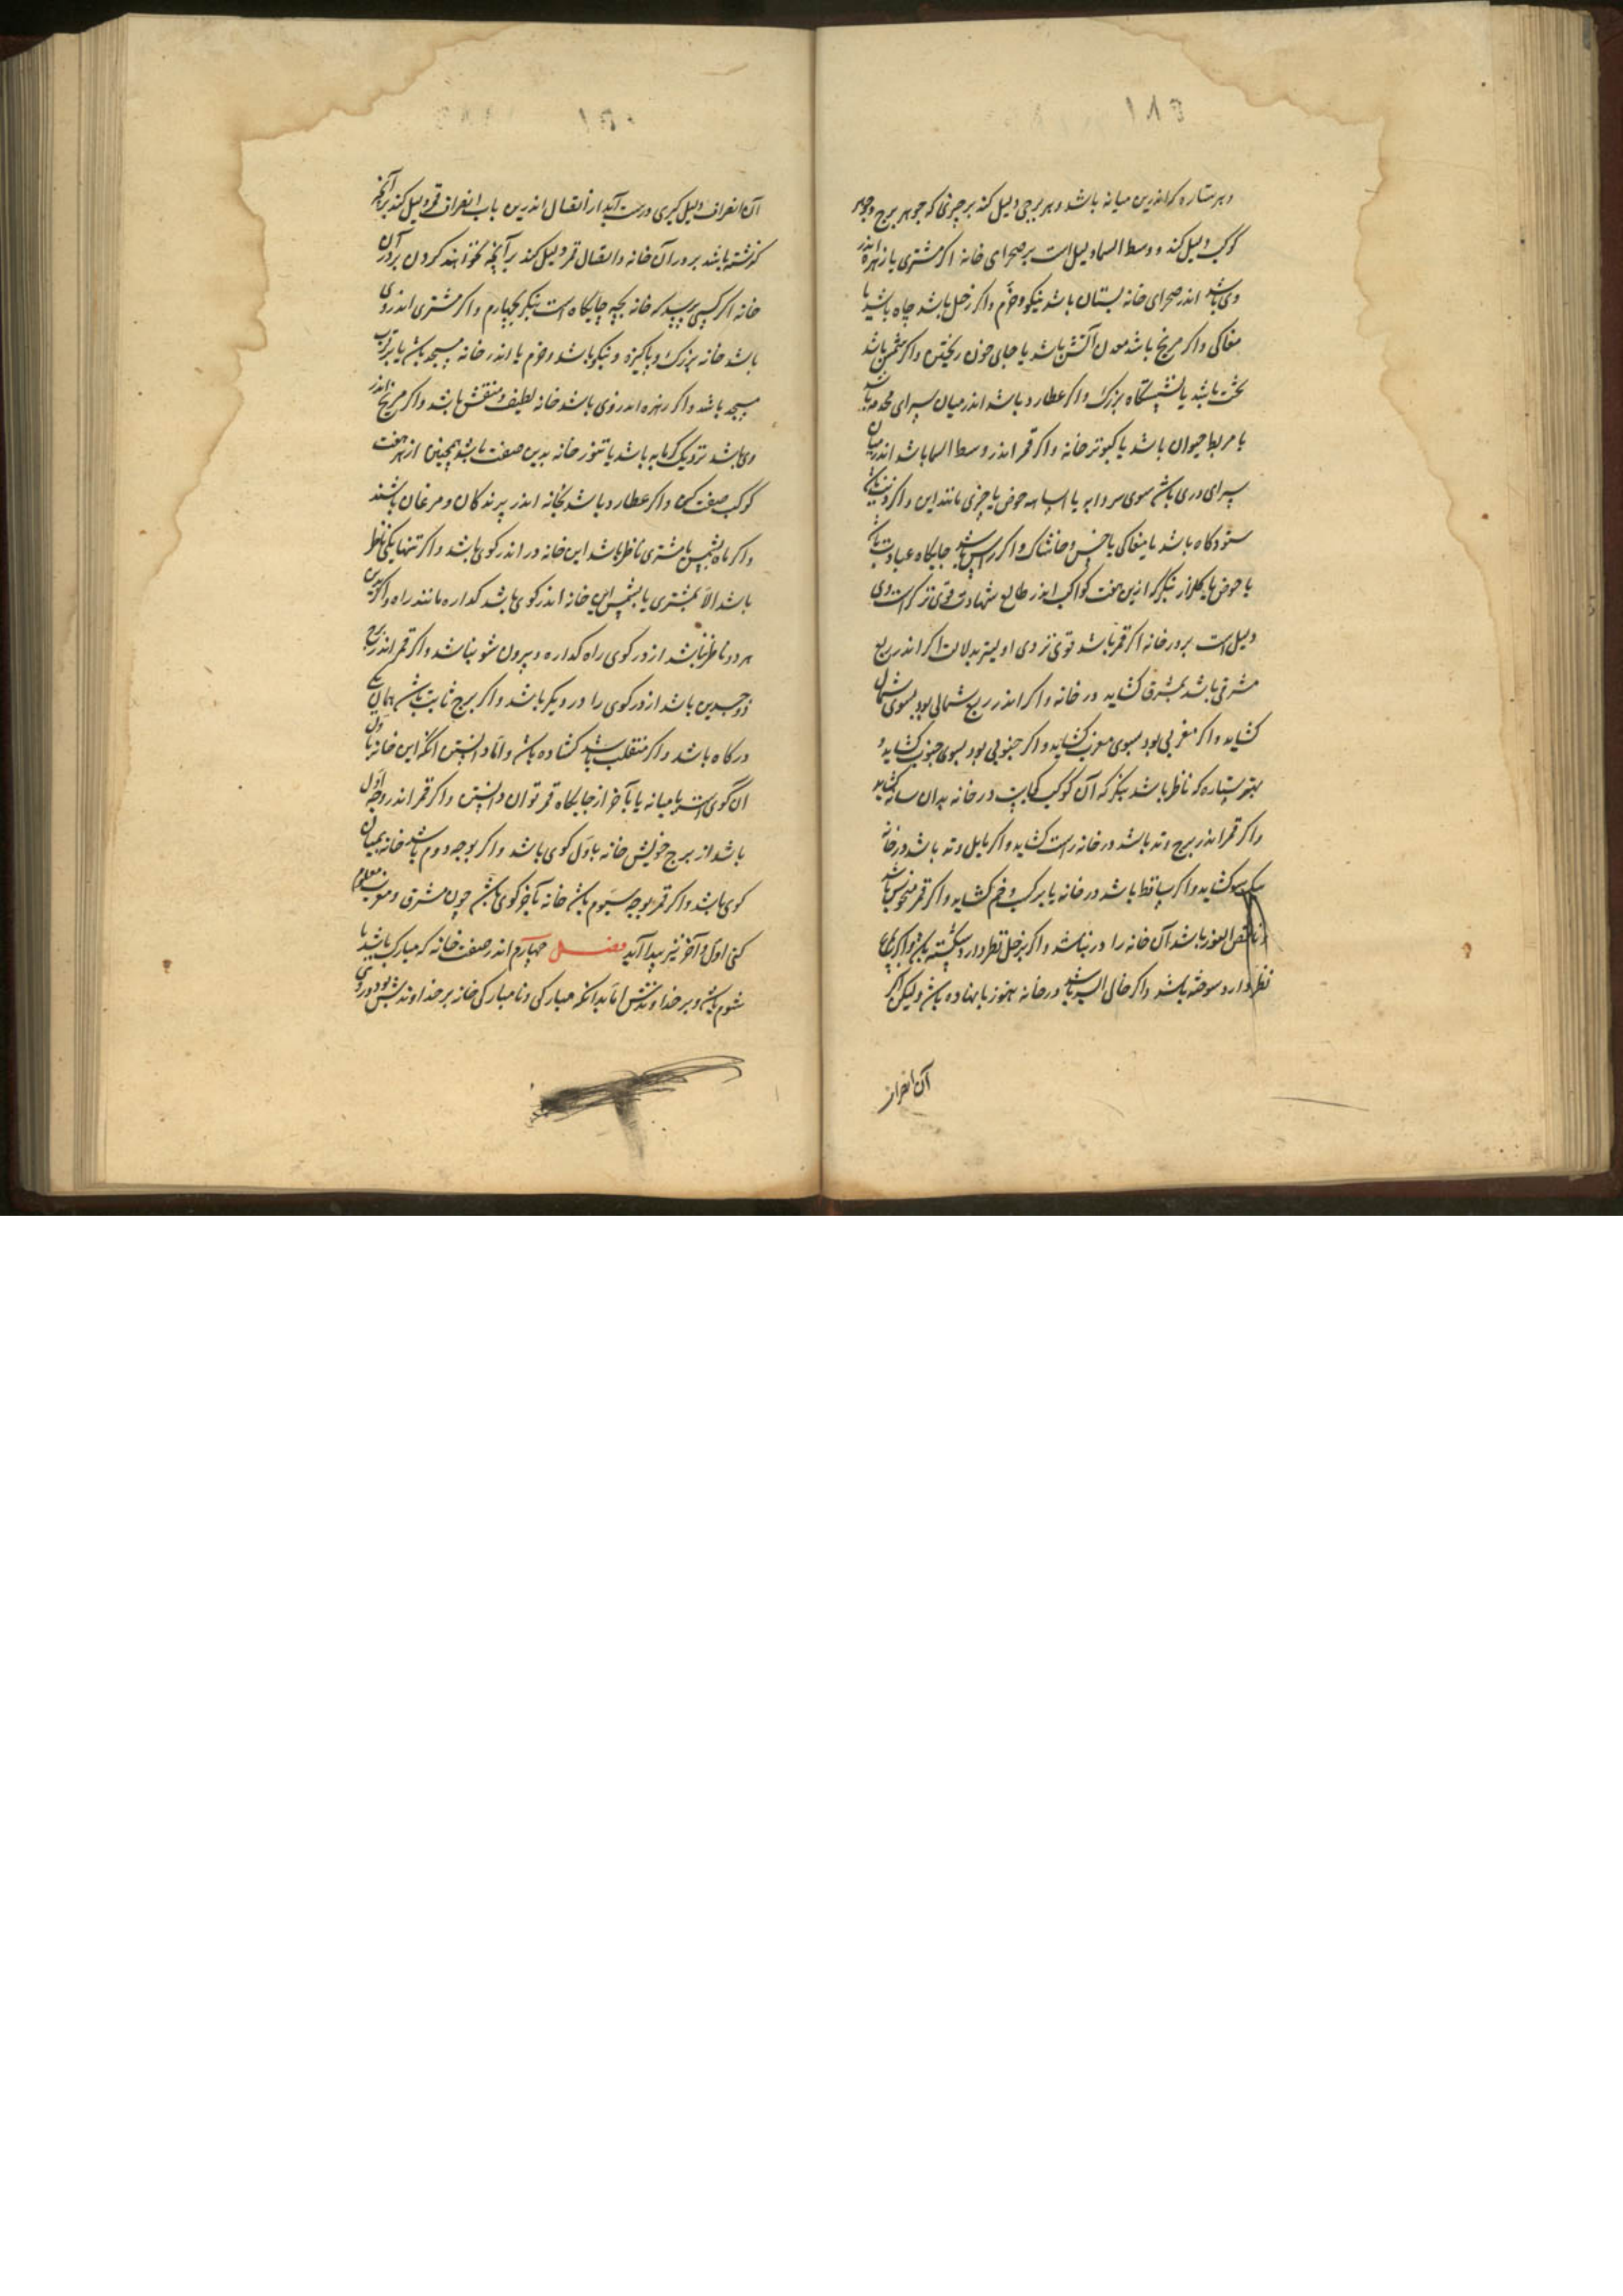 و هر ستاره که اندرین میانه باشد و هر برجی دلیل کند بر چیزی که جوهر برج و جوهر
کوکب دلیل کند و وسط السما دلیل است بر صحرای خانه اگر مشتری یا زهره اندر
وی باشد اندر صحرای خانه بستان باشد نیکو و خرم و اگر زحل باشد چاه باشد یا
مغاکی و اگر مریخ باشد معدن آتش باشد یا جای خون ریختن و اگر شمس باشد
تخت باشد یا نشستگاه بزرگ و اگر عطارد باشد اندر میان سرای
یا مربط حیوان باشد یا کبوتر خانه و اگر قمر اندر وسط السما باشد اندر میان
سرای دری باشد سوی سردابه یا حوض یا چیزی مانند این و اگر
ستودکاه باشد یا مغاکی یا خس و خاشاک و اگر راس باشد جایگاه عبادت باشد
یا حوض بنگر که ازین هفت کواکب اندر طالع شهادت قوی تر کراست وی
دلیل است بر در خانه اگر قمر باشد قوی تر وی اولیتر بدلالت اگر اندر ربع
مشرقی باشد بمشرق گشاید در خانه و اگر اندر ربع شمالی بود بسوی شمال
گشاید و اگر مغربی بود بسوی مغرب گشاید و اگر جنوبی بود بسوی جنوب گشاید و
بهر ستاره که ناظر باشد بنگر که آن کوکب کجاست در خانه بدان سانه گشاید
و اگر قمر اندر برج وتد باشد در خانه راست گشاید و اگر مایل وتد باشد در خانه
بیکسو گشاید و اگر ساقط باشد در خانه گشاید و اگر قمر منحوس باشد
و ناقص النور باشد آن خانه را در نباشد و اگر بزحل نظر دارد شکسته باشد و اگر بمریخ
نظر دارد سوخته باشد و اگر خالی السیر باشد در خانه هنوز نانهاده باشد ولیکن اگر
آن انصراف
آن انصراف دلیل گیری درست آید از اتصال اندرین باب انصراف قمر دلیل کند بر آنچه
گذشته باشد بر در آن خانه و اتصال قمر دلیل کند بر آنچه خواهند کردن بر در آن
خانه اگر کسی پرسد که خانه بچه جایگاه است بنگر بچهارم و اگر مشتری اندر وی
باشد خانه بزرگ و پاکیزه و نیکو باشد و خرم یا اندر خانه مسجد باشد یا بر قرب
مسجد باشد و اگر زهره اندر وی باشد خانه لطیف و منقش باشد و اگر مریخ اندر
وی باشد نزدیک گرمابه باشد یا تنور خانه بدین صفت باشد همچنین از هر هفت
کوکب صفت کن و اگر عطارد باشد بخانه اندر پرندگان و مرغان باشند
و اگر ماه بشمس یا مشتری ناظر باشد این خانه در اندر کوی باشد و اگر تنها یکی ناظر
باشد الا بمشتری یا بشمس این خانه اندر کوی باشد گذاره مانند راه و اگر بدین
هر دو ناظر نباشد از در کوی راه گذاره و بیرون شو نباشد و اگر قمر اندر برج
ذو جسدین باشد از در کوی را در دیگر باشد و اگر برج ثابت باشد همان یکی
درگاه باشد و اگر منقلب باشد گشاده باشد و اما دانستن آنکه این خانه باول
آن کوی است یا میانه یا بآخر از جایگاه قمر توان دانستن و اگر قمر اندر وجه اول
باشد از برج خویش خانه باول کوی باشد و اگر بوجه دوم باشد خانه بمیان
کوی باشد و اگر قمر بوجه سیوم باشد خانه بآخر کوی باشد چون مشرق و مغرب معلوم
کنی اول و آخر نیز پیدا آید فصل چهارم اندر صفت خانه که مبارک باشد یا
شوم باشد بر خداوندش اما بدانکه مبارکی و نامبارکی خانه بر خداوندش بود